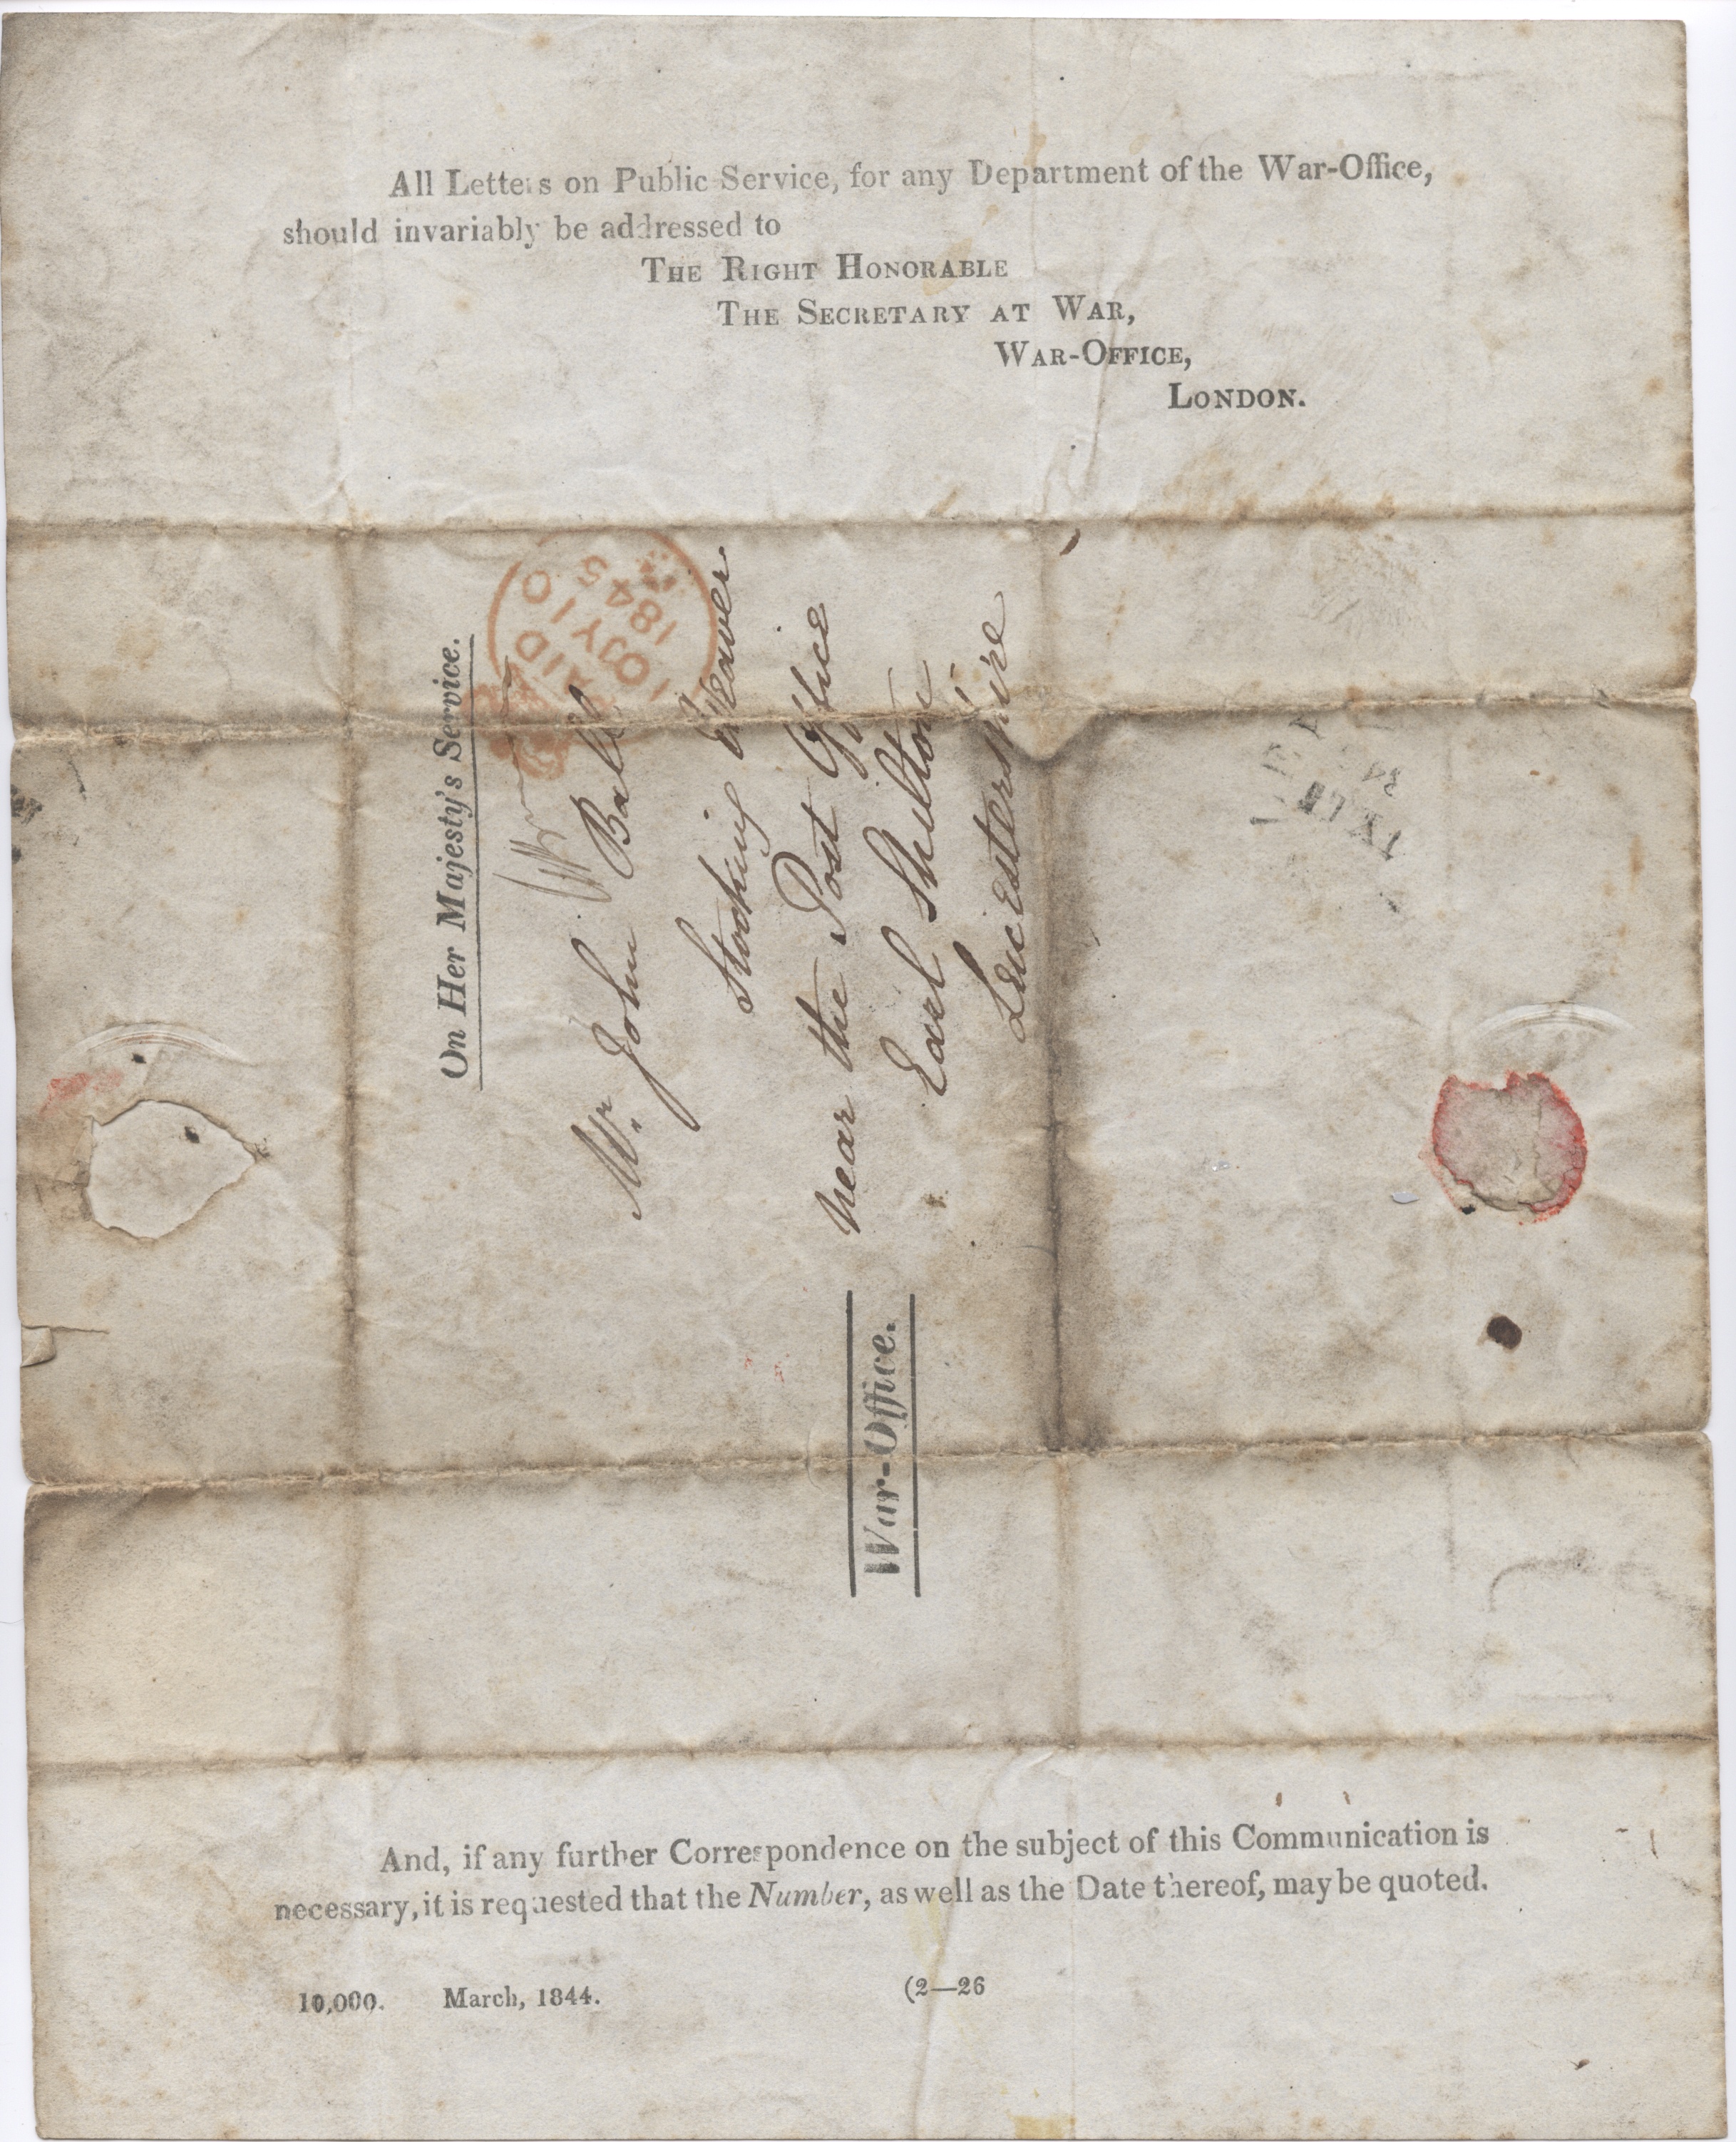 All Letters on Public Service, for any Department of the War-Office,
should invariably be addressed to
THE RIGHT HONORABLE
THE SECRETARY AT WAR,
WAR-OFFICE,
LONDON.
On Her Majesty's Service.
PAID
10 JY 10
184
5
Mr. John Ball
Stocking Weaver
near the Post Office
Earl Shilton
Leicestershire
War-Office.
And, if any further Correspondence on the subject of this Communication is
necessary, it is requested that the Number, as well as the Date thereof, may be quoted.
10,000. March, 1844. (2—26